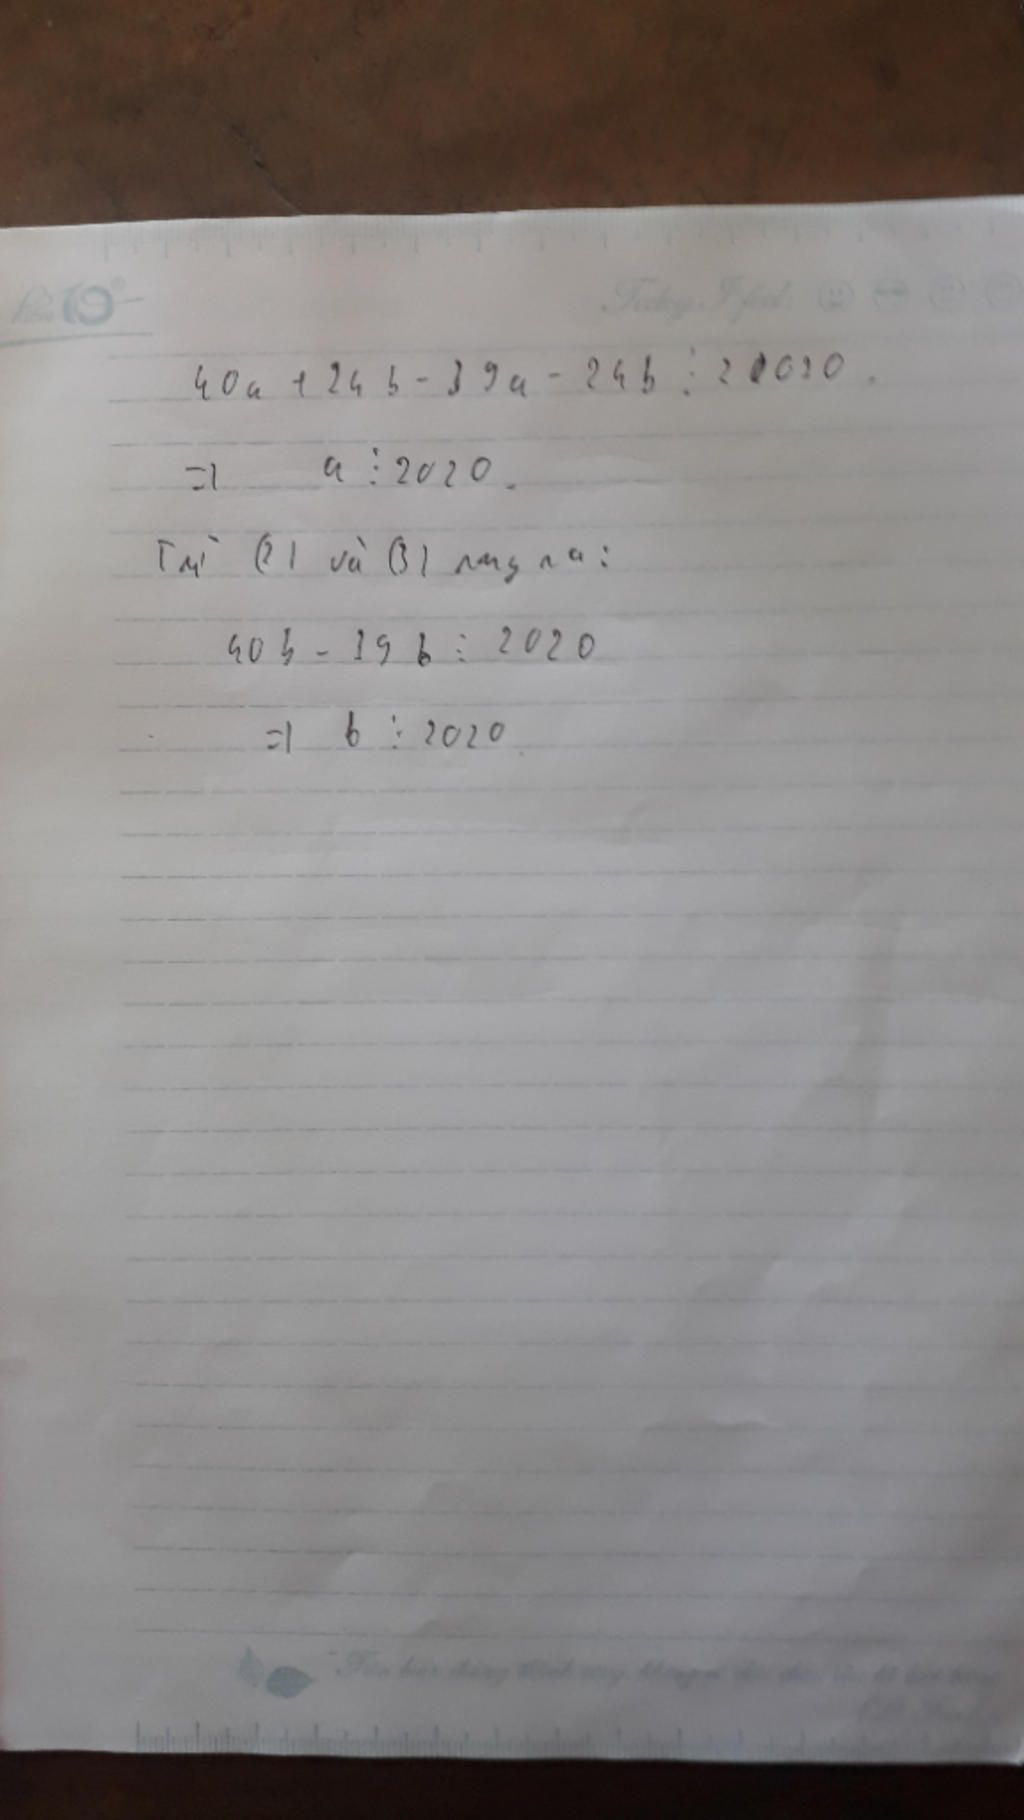 Today I feel:
40a + 24b - 39a - 24b ⋮ 2020.
=> a ⋮ 2020.
Từ (2) và (3) suy ra:
40b - 39b ⋮ 2020
=> b ⋮ 2020